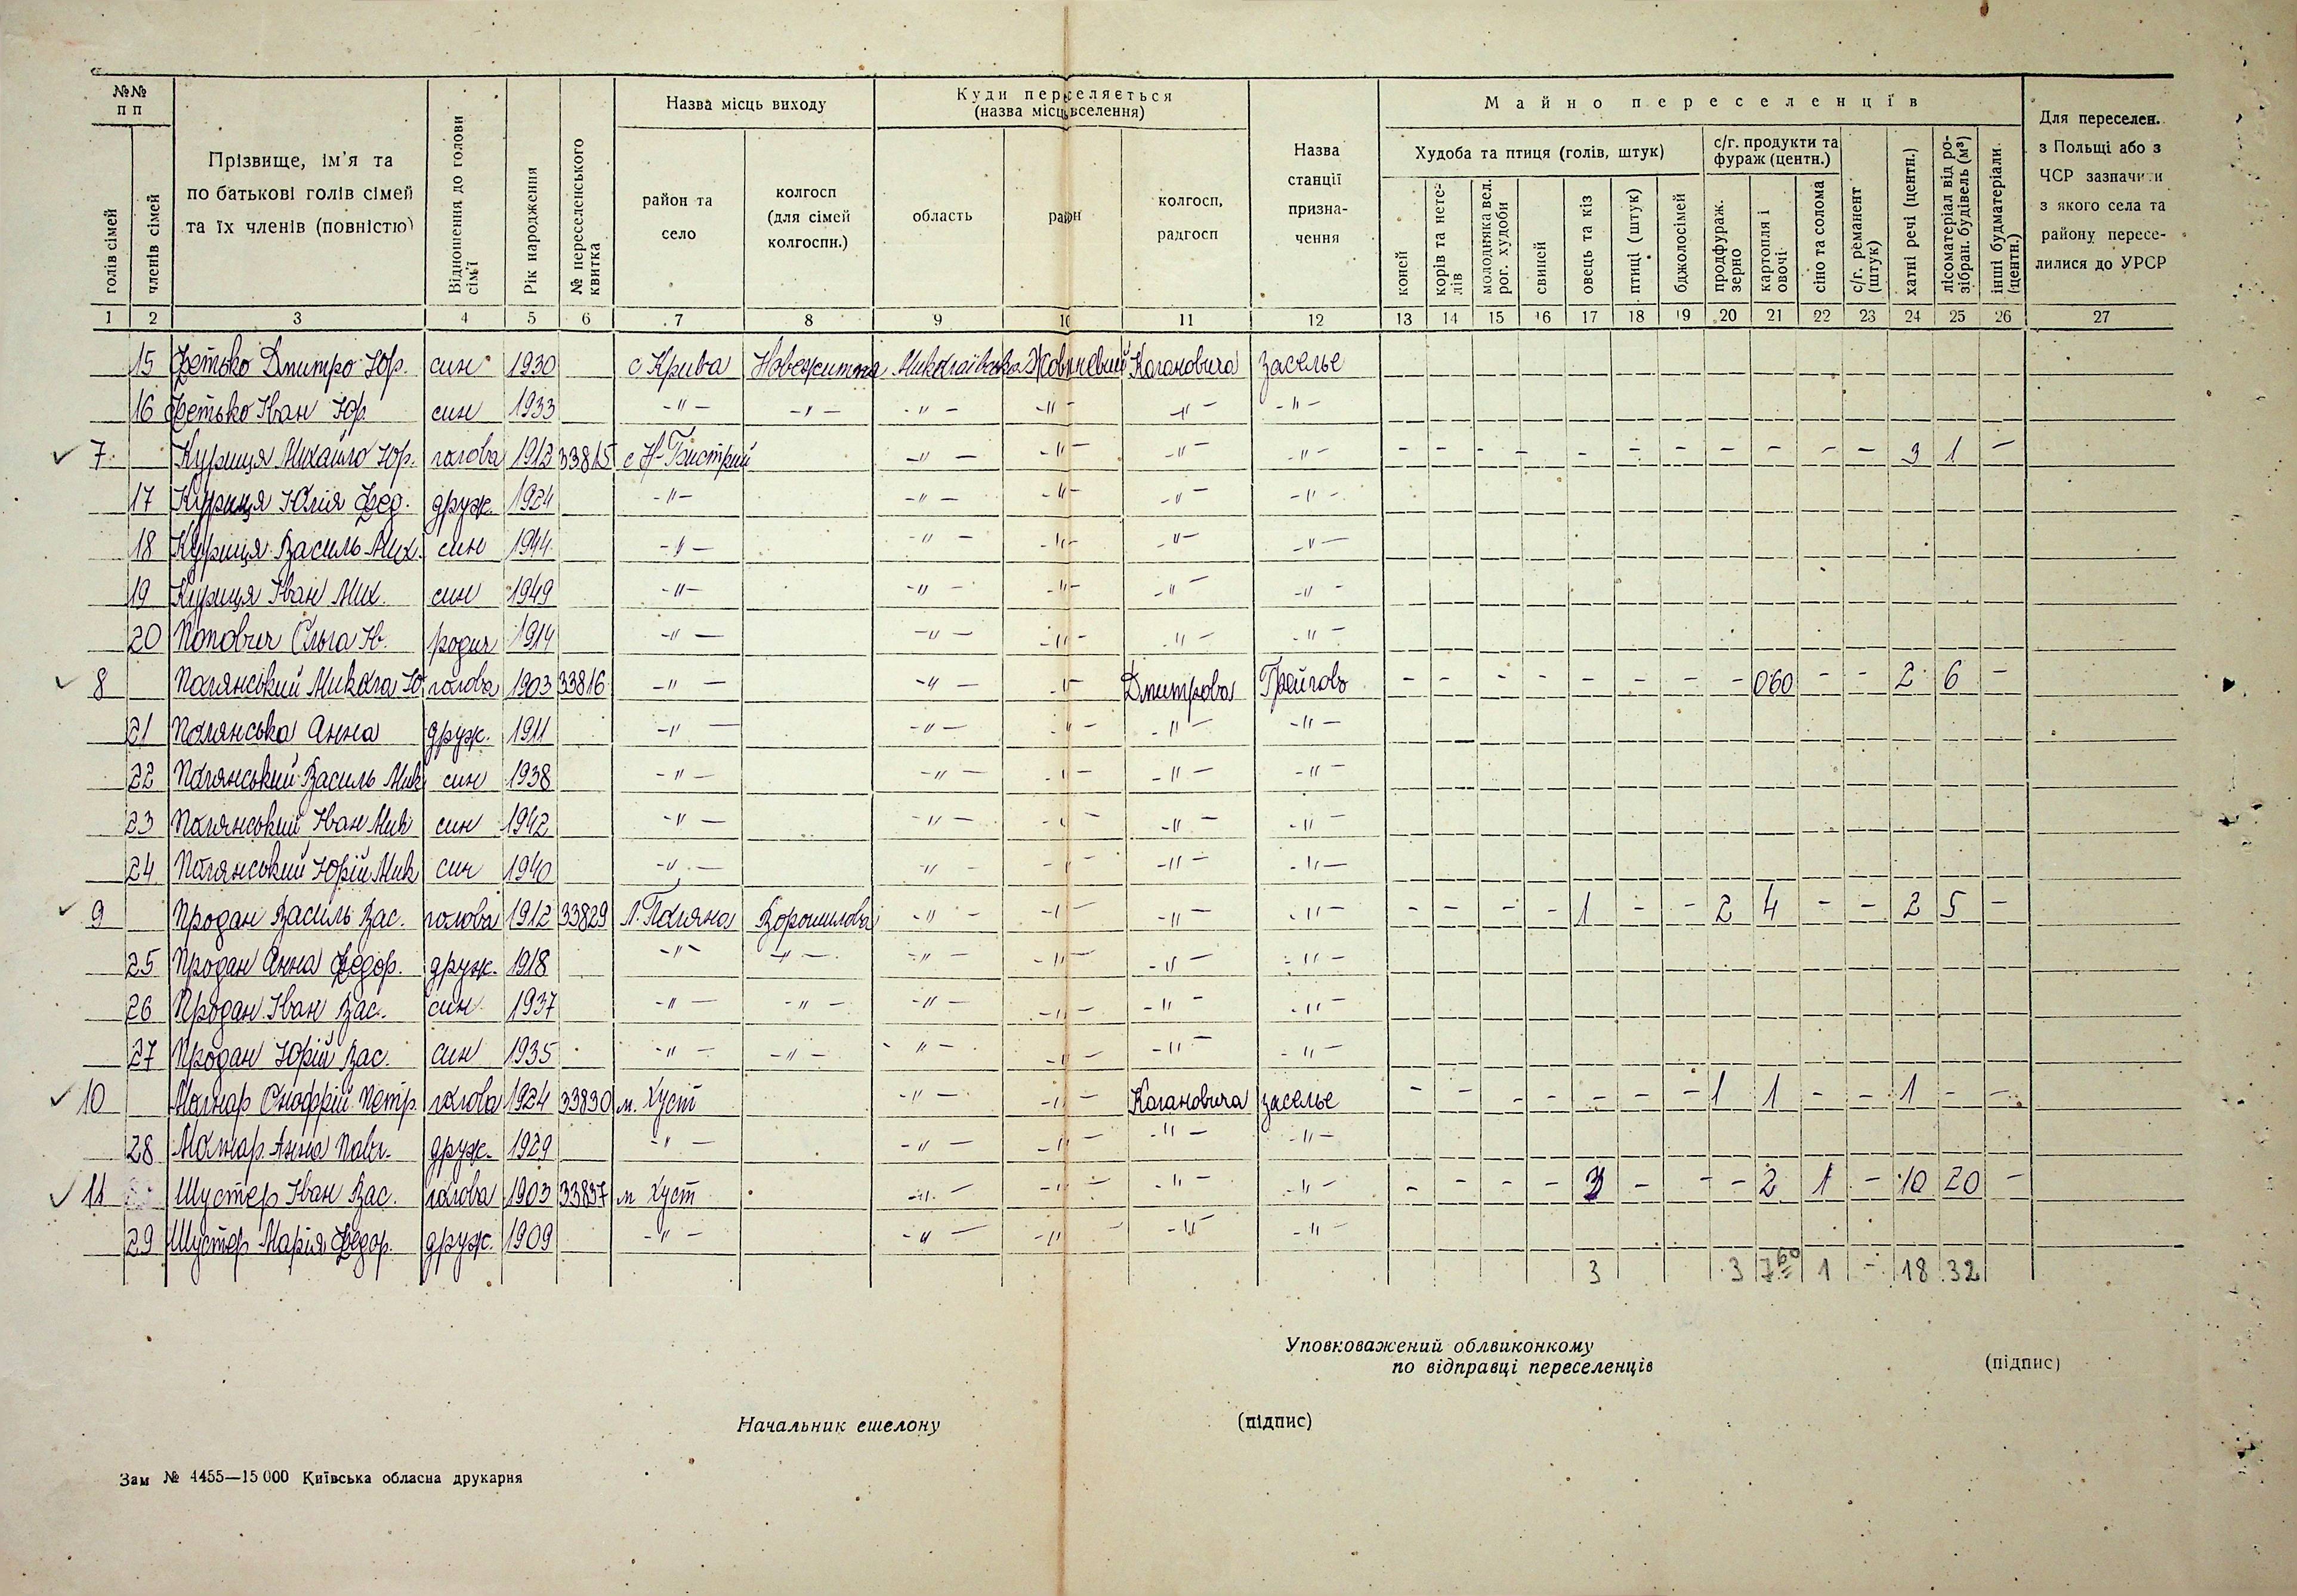 №№ п п
Прізвище, ім'я та по батькові голів сімей та їх членів (повністю)
Відношення до голови сім'ї
Рік народження
№ переселенського квитка
Назва місць виходу
Куди переселяється (назва місць вселення)
Назва станції призна-чення
Майно переселенців
Для переселен. з Польщі або з ЧСР зазначити з якого села та району пересе-лилися до УРСР
голів сімей
членів сімей
район та село
колгосп (для сімей колгоспн.)
область
район
колгосп, радгосп
Худоба та птиця (голів, штук)
с/г. продукти та фураж (центн.)
с/г. реманент (штук)
хатні речі (центн.)
лісоматеріал від ро-зібран. будівель (м³)
інші будматеріали (центн.)
коней
корів та нете-лів
молодняка вел. рог. худоби
свиней
овець та кіз
птиці (штук)
бджолосімей
продфураж. зерно
картопля і овочі
сіно та солома
1 2 3 4 5 6 7 8 9 10 11 12 13 14 15 16 17 18 19 20 21 22 23 24 25 26 27
15 Фетько Дмитро Юр. син 1930 с Крива Нове життя Миколаївська Жовтневий Кагановича Заселье
16 Фетько Іван Юр син 1933 -"- -"- -"- -"- -"- -"-
7 Куриця Михайло Юр. голова 1912 33815 с Н-Бистрий -"- -"- -"- -"- - - - - - - - - - - - 3 1 -
17 Куриця Юлія Фед. друж. 1924 -"- -"- -"- -"- -"-
18 Куриця Василь Мих. син 1944 -"- -"- -"- -"- -"-
19 Куриця Іван Мих. син 1949 -"- -"- -"- -"- -"-
20 Попович Ольга Ів. родич 1914 -"- -"- -"- -"- -"-
8 Полянський Микола Ю голова 1903 33816 -"- -"- -"- Димитрова Грейгово - - - - - - - - 060 - - 2 6 -
21 Полянська Анна друж. 1911 -"- -"- -"- -"- -"-
22 Полянський Василь Мик син 1938 -"- -"- -"- -"- -"-
23 Полянський Іван Мик син 1942 -"- -"- -"- -"- -"-
24 Полянський Юрій Мик син 1940 -"- -"- -"- -"- -"-
9 Продан Василь Вас. голова 1912 33829 Л. Поляна Ворошилова -"- -"- -"- -"- - - - - 1 - - 2 4 - - 2 5 -
25 Продан Анна Федор. друж. 1918 -"- -"- -"- -"- -"- -"-
26 Продан Іван Вас. син 1937 -"- -"- -"- -"- -"- -"-
27 Продан Юрій Вас. син 1935 -"- -"- -"- -"- -"- -"-
10 Молнар Онофрій Петр. голова 1924 33830 м. Хуст -"- -"- Кагановича Заселье - - - - - - - 1 1 - - 1 - -
28 Молнар Анна Павл. друж. 1929 -"- -"- -"- -"- -"-
11 Шустер Іван Вас. голова 1903 33837 м Хуст -"- -"- -"- -"- - - - - 3 - - - 2 1 - 10 20 -
29 Шустер Марія Федор. друж. 1909 -"- -"- -"- -"- -"-
3 3 7 60 1 - 18 32
Уповноважений облвиконкому
по відправці переселенців (підпис)
Начальник ешелону (підпис)
Зам № 4455—15 000 Київська обласна друкарня